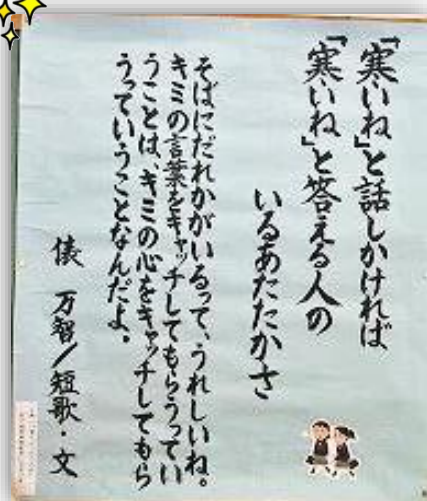 「寒いね」と話しかければ
「寒いね」と答える人の
いるあたたかさ
そばにだれかがいるって、うれしいね。
キミの言葉をキャッチしてもらうってい
うことは、キミの心をキャッチしてもら
うっていうことなんだよ。
俵 万智/短歌・文